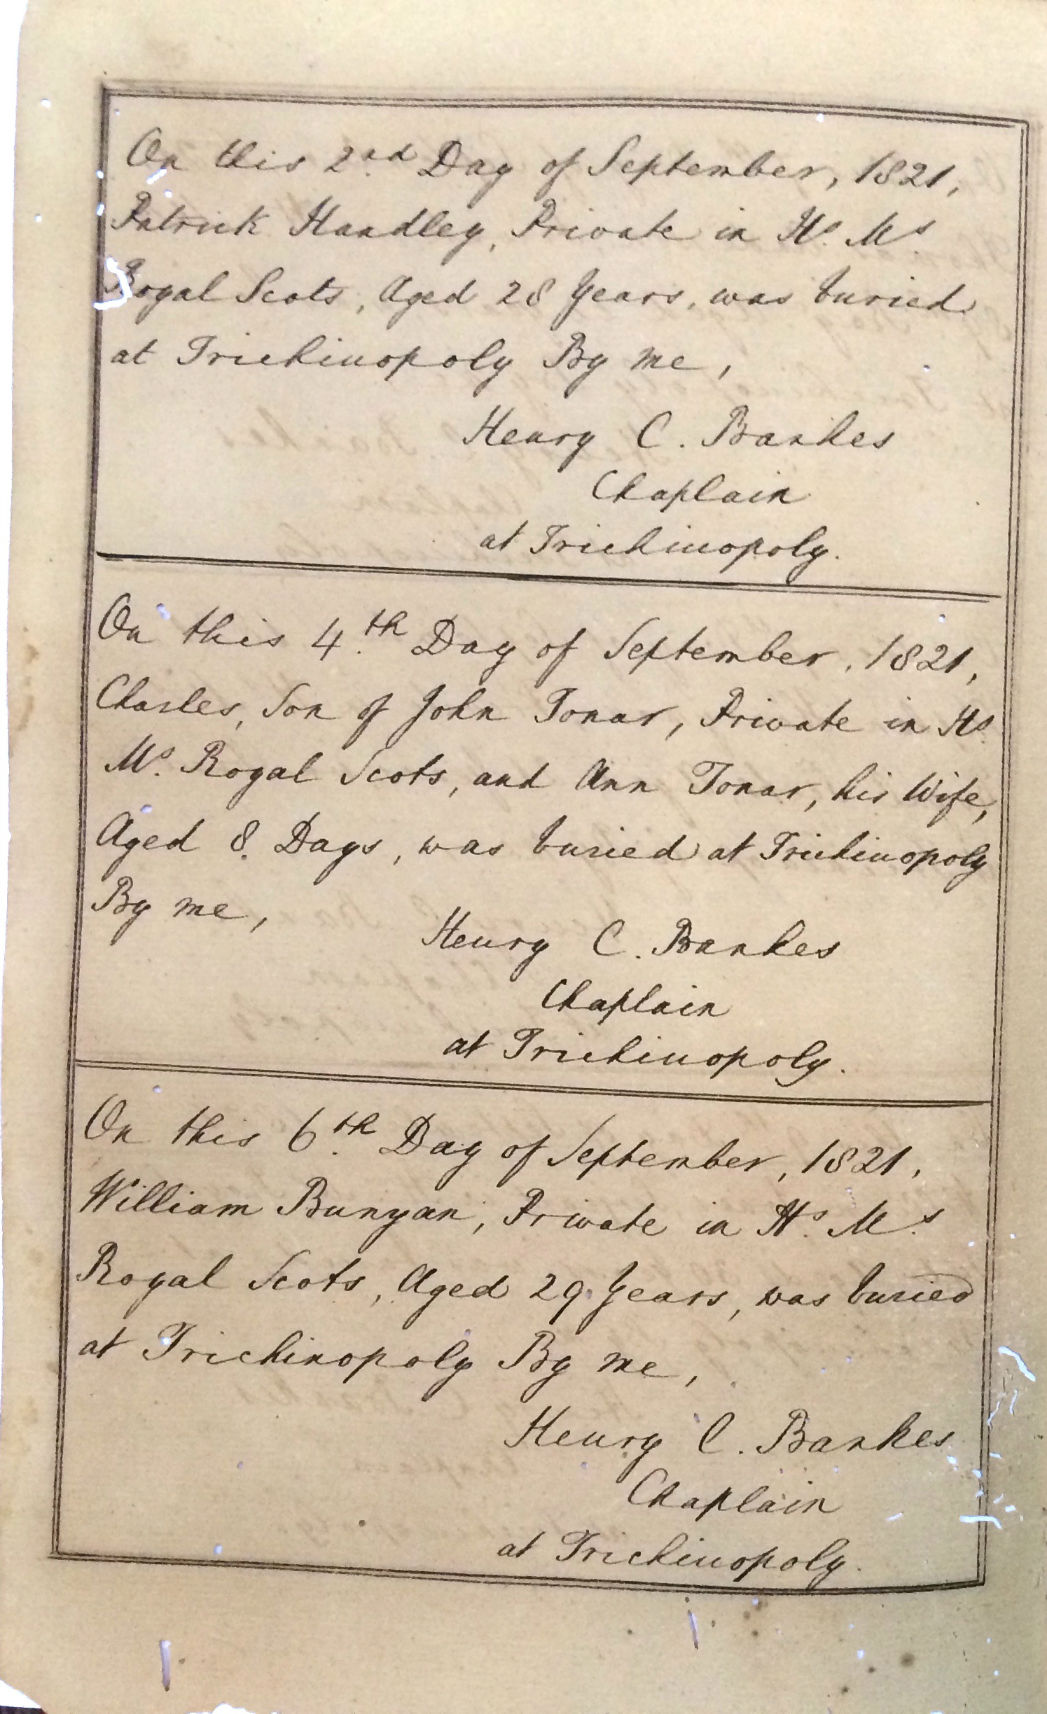 On this 2nd Day of September, 1821,
Patrick Handley, Private in H.s M.s
Royal Scots, Aged 28 Years, was buried
at Trichinopoly By me,
Henry C. Bankes
Chaplain
at Trichinopoly.
On this 4th Day of September, 1821,
Charles, Son of John Tonar, Private in H.s
M.s Royal Scots, and Ann Tonar, his Wife,
Aged 8. Days, was buried at Trichinopoly
By me,
Henry C. Bankes
Chaplain
at Trichinopoly.
On this 6th Day of September, 1821,
William Bunyan, Private in H.s M.s
Royal Scots, Aged 29 Years, was buried
at Trichinopoly By me,
Henry C. Bankes
Chaplain
at Trichinopoly.